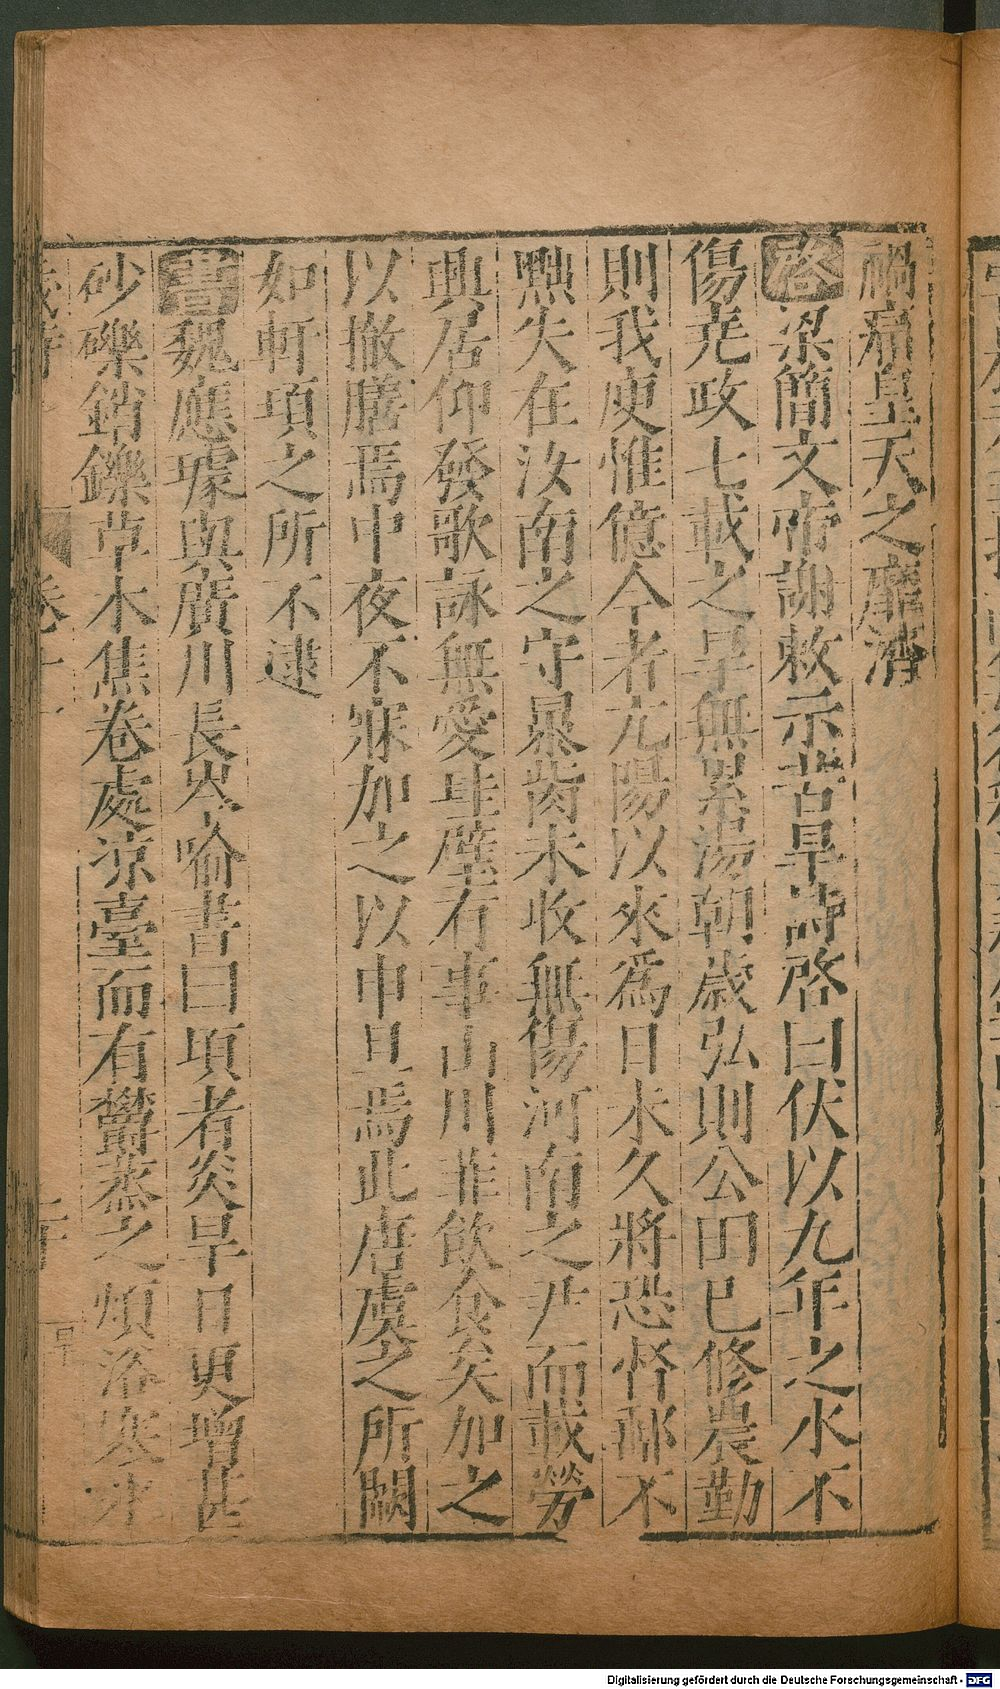 禍痛皇天之靡濟
啓梁簡文帝謝敕示苦旱詩啓曰伏以九年之水不
傷堯政七載之旱無累湯朝歲弘則公田已修農勤
則我庾惟億今者亢陽以來爲日未久將恐督郵不
黜失在汝南之守暴胔未收無傷河南之尹而載勞
興居仰發歌詠無愛圭璧有事山川菲飲食矣加之
以撤膳焉中夜不寐加之以申旦焉此唐虞之所闕
如軒項之所不逮
書魏應璩與廣川長岑喻書曰項者炎旱日更增甚
砂礫銷鑠草木焦卷處涼臺而有鬱蒸之煩浴寒水
歲時
卷
Digitalisierung gefördert durch die Deutsche Forschungsgemeinschaft - DFG